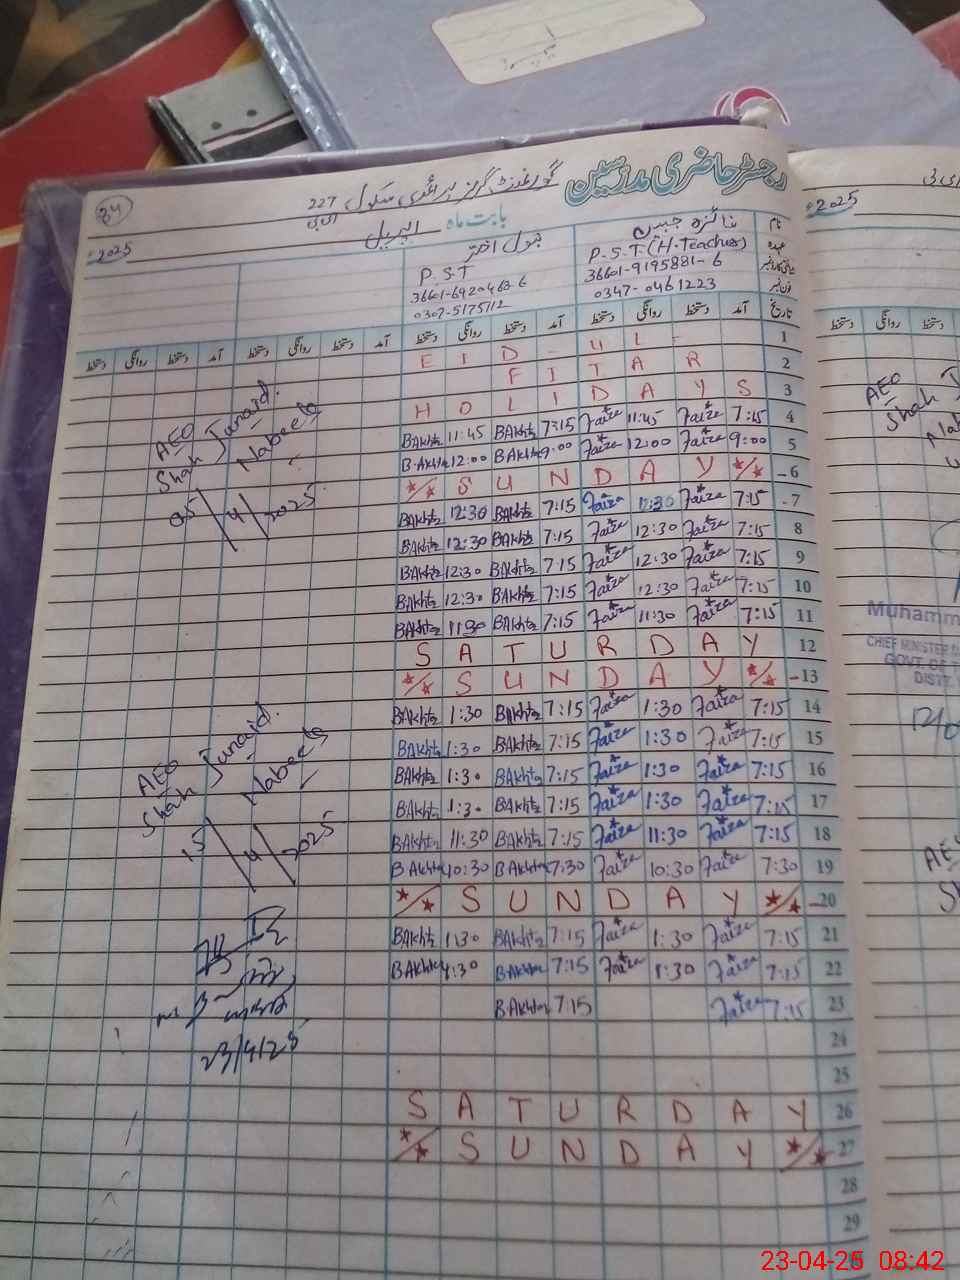 رجسٹر حاضری مدرسین
گورنمنٹ گرلز پرائمری سکول 227
34
بابت ماہ اپریل
2025
2025
نام فائزہ جبین بتول اختر
عہدہ P.S.T (H.Teacher) P.S.T
36601-9195881-6 36601-6920463-6
0347-0461223 0307-5175712
تاریخ آمد دستخط روانگی دستخط آمد دستخط روانگی دستخط آمد دستخط روانگی دستخط آمد دستخط روانگی دستخط
دستخط روانگی
EID-UL- 1
FITAR 2
HOLIDAYS 3
Bakhta 11:45 Bakhta 7:15 Faiza 11:45 Faiza 7:15 4
Bakhta 12:00 Bakhta 9:00 Faiza 12:00 Faiza 9:00 5
SUNDAY 6
Bakhta 12:30 Bakhta 7:15 Faiza 12:30 Faiza 7:15 7
Bakhta 12:30 Bakhta 7:15 Faiza 12:30 Faiza 7:15 8
Bakhta 12:30 Bakhta 7:15 Faiza 12:30 Faiza 7:15 9
Bakhta 12:30 Bakhta 7:15 Faiza 12:30 Faiza 7:15 10
Bakhta 11:30 Bakhta 7:15 Faiza 11:30 Faiza 7:15 11
SATURDAY 12
SUNDAY 13
Bakhta 1:30 Bakhta 7:15 Faiza 1:30 Faiza 7:15 14
Bakhta 1:30 Bakhta 7:15 Faiza 1:30 Faiza 7:15 15
Bakhta 1:30 Bakhta 7:15 Faiza 1:30 Faiza 7:15 16
Bakhta 1:30 Bakhta 7:15 Faiza 1:30 Faiza 7:15 17
Bakhta 11:30 Bakhta 7:15 Faiza 11:30 Faiza 7:15 18
Bakhta 10:30 Bakhta 7:30 Faiza 10:30 Faiza 7:30 19
SUNDAY 20
Bakhta 1:30 Bakhta 7:15 Faiza 1:30 Faiza 7:15 21
Bakhta 1:30 Bakhta 7:15 Faiza 1:30 Faiza 7:15 22
Bakhta 7:15 Faiza 7:15 23
24
25
SATURDAY 26
SUNDAY 27
28
29
AEO
Shah Junaid
Nabeela
05/4/2025
AEO
Shah Junaid
Nabeela
15/4/2025
23/4/25
AEO
Shah
Muhamm
CHIEF MINISTER
GOVT. OF
DISTT.
23-04-25 08:42